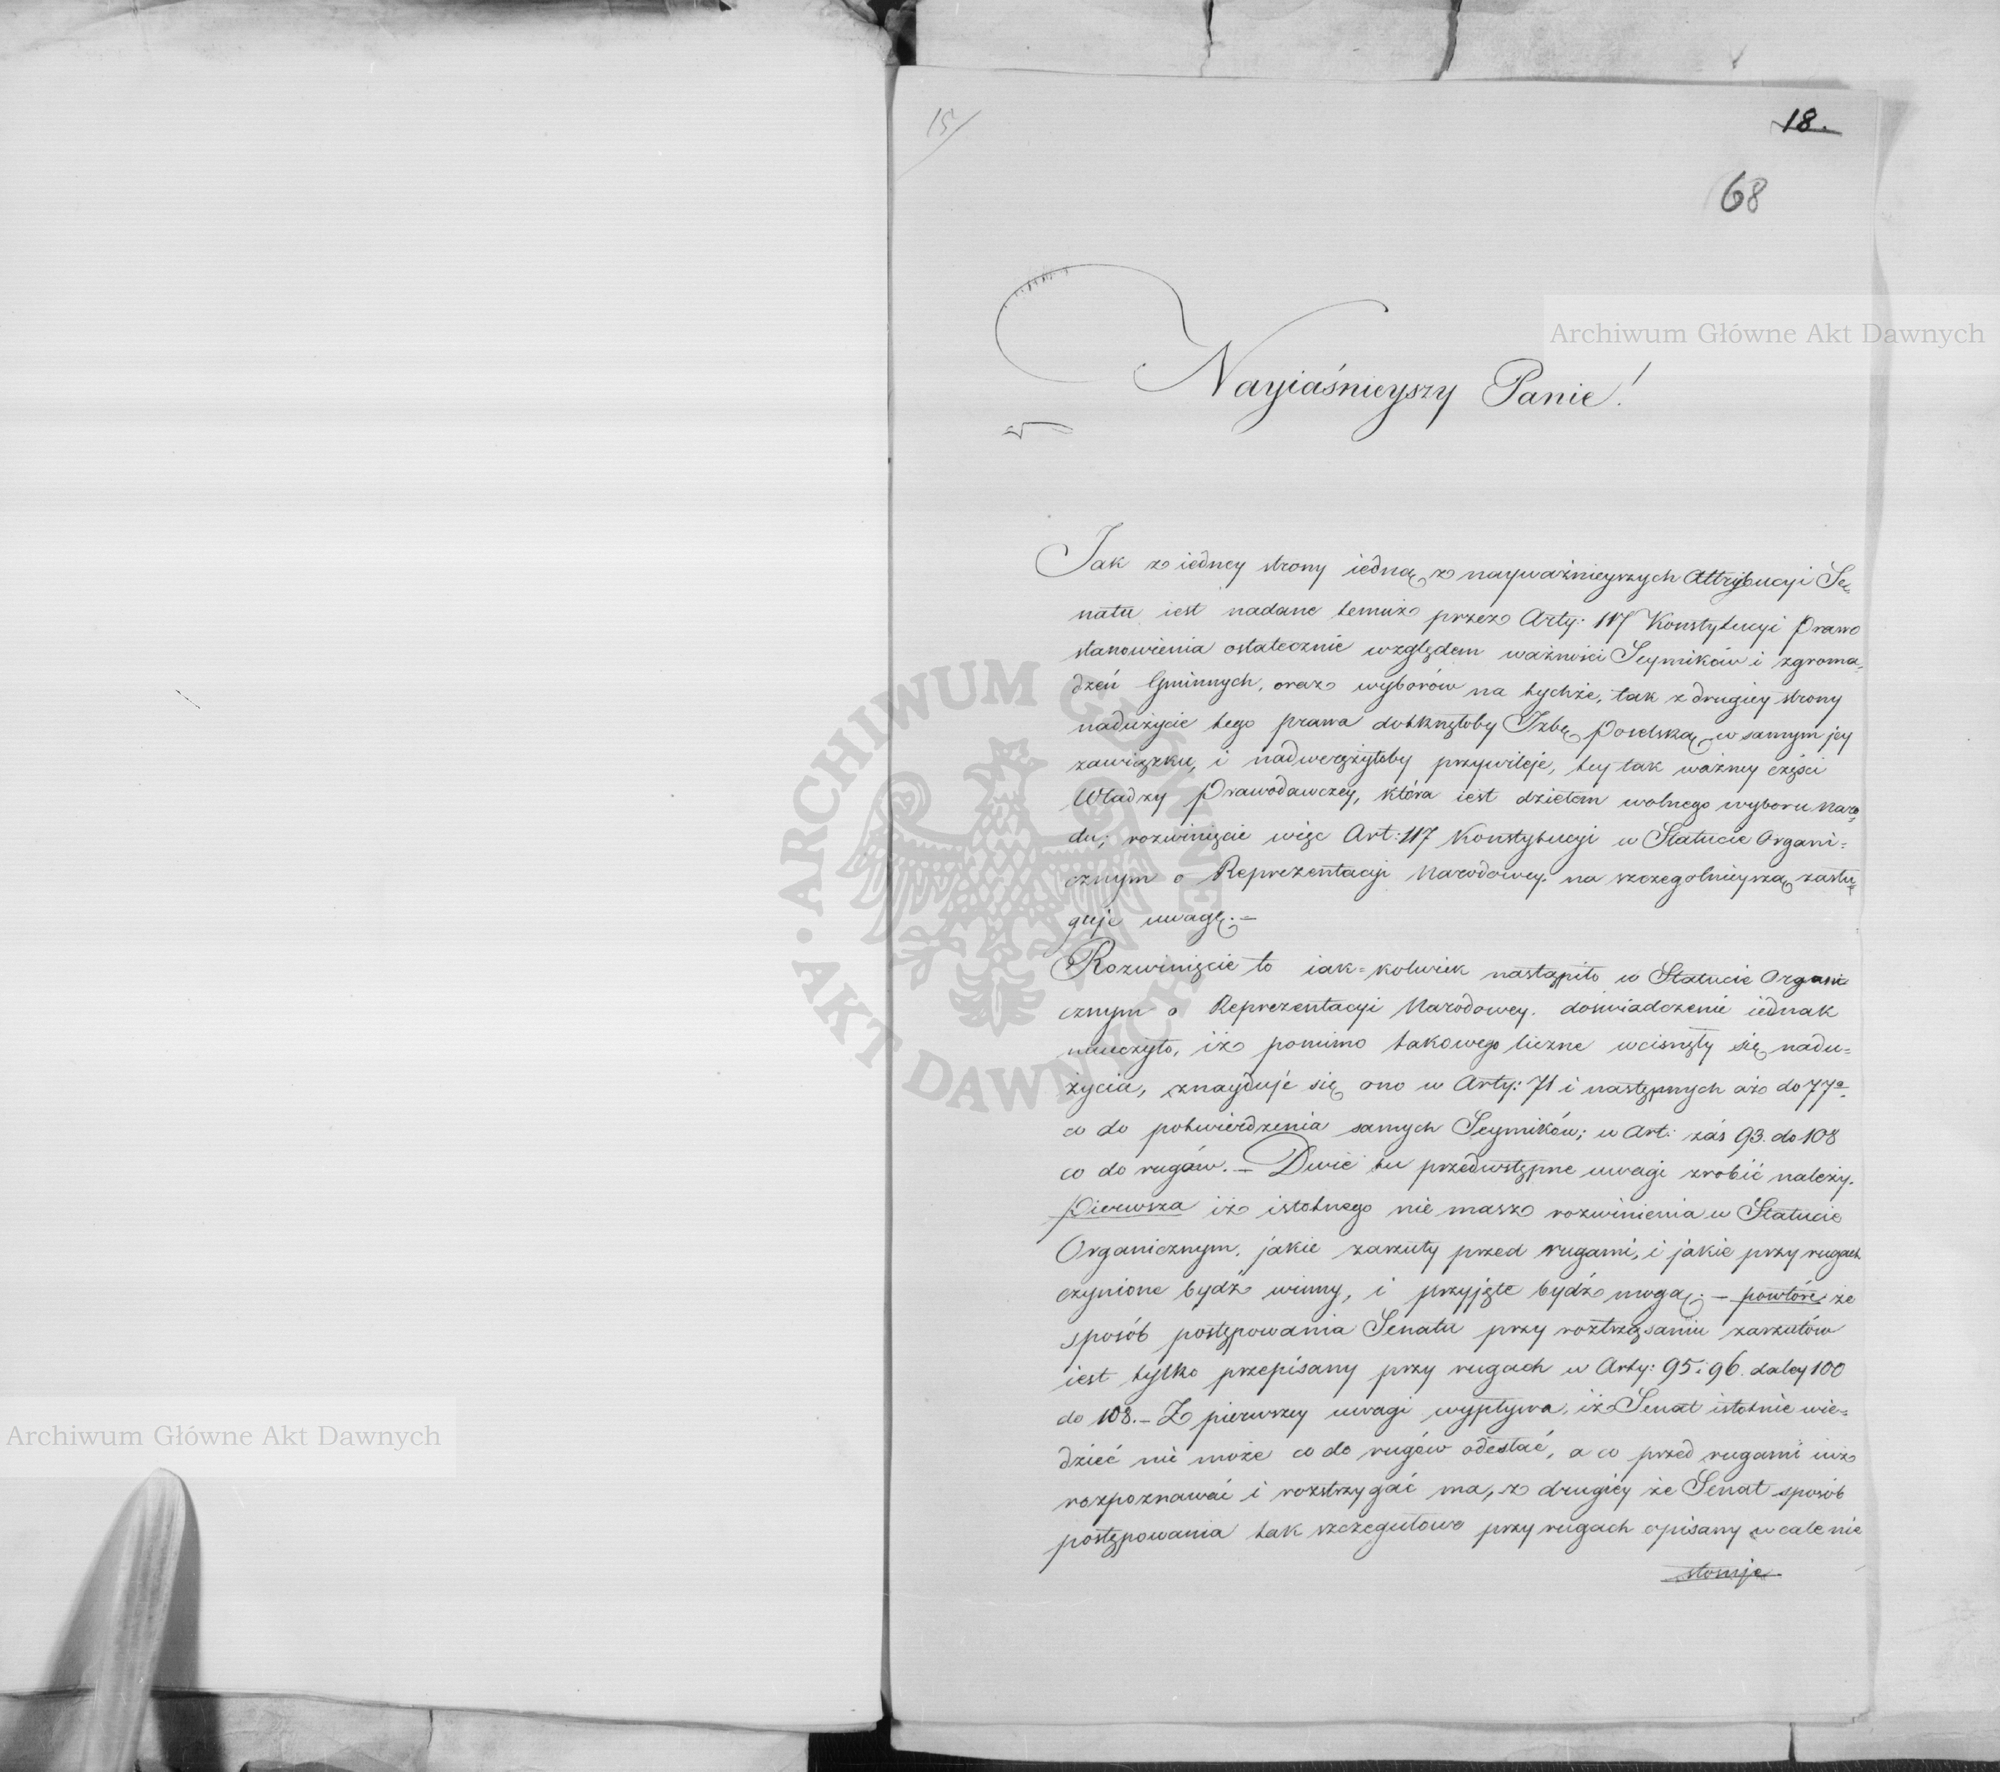 15/
18.
68
Archiwum Główne Akt Dawnych
Nayiaśnieyszy Panie!
Jak z iedney strony iedną z nayważnieyszych Attrybucyi Se=
natu iest nadane temuż przez Arty: 117 Konstytucyi Prawo
stanowienia ostatecznie względem ważności Seymików i zgroma=
dzeń Gminnych, oraz wyborów na tychże, tak z drugiey strony
nadużycie tego prawa dotknęłoby Izbę Poselską w samym jey
zawiązku, i nadweręzyłoby przywileje, tey tak ważney części
Władzy Prawodawczey, która iest dziełem wolnego wyboru Naro=
du; rozwinięcie więc Art: 117 Konstytucyi w Statucie Organi=
cznym o Reprezentacyi Narodowey. na szczegolnieyszą zasłu=
guje uwagę. –
Rozwinięcie to iak=kolwiek nastąpiło w Statucie Organi
cznym o Reprezentacyi Narodowey. doświadczenie iednak
nauczyło, iż pomimo takowego liczne wcisnęły się nadu=
życia, znayduje się ono w Arty: 71 i następnych aż do 77º
co do potwierdzenia samych Seymików; w Art: zaś 93. do 108
co do rugów. – Dwie tu przedwstępne uwagi zrobić należy.
Pierwsza iż istotnego nie masz rozwinienia w Statucie
Organicznym, jakie zarzuty przed rugami, i jakie przy rugach
czynione bydź winny, i przyjęte bydź mogą. – powtóre że
sposób postępowania Senatu przy roztrzęsaniu zarzutów
iest tylko przepisany przy rugach w Arty: 95 i 96. daley 100
do 108. – Z pierwszey uwagi wypływa, iż Senat istotnie wie=
dzieć nie może co do rugów odesłać, a co przed rugami iuż
rozpoznawać i rozstrzygać ma, z drugiey że Senat sposób
postępowania tak szczegułowo przy rugach opisany wcale nie
stosuje
ARCHIWUM GŁÓWNE AKT DAWNYCH
Archiwum Główne Akt Dawnych